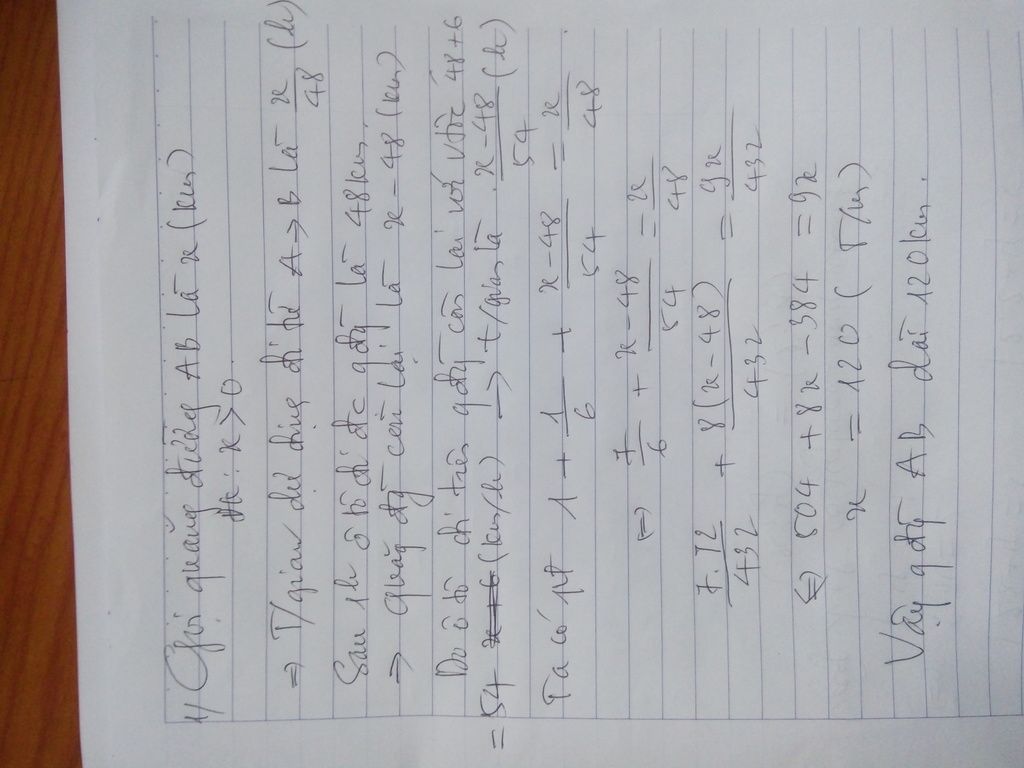 1/ Gọi quãng đường AB là x (km)
đk: x > 0
=> T/gian dự định đi từ A → B là x/48 (h)
Sau 1h ô tô đi đc qđg là 48km,
=> quãg đg còn lại là x - 48 (km)
Do ô tô đi trên qđg còn lại với vtốc 48+6
= 54 (km/h) → t/gian là x-48/54 (h)
Ta có pt 1 + 1/6 + x-48/54 = x/48
<=> 7/6 + x-48/54 = x/48
7.72/432 + 8(x-48)/432 = 9x/432
<=> 504 + 8x - 384 = 9x
x = 120 (T/m)
Vậy qđg AB dài 120km.